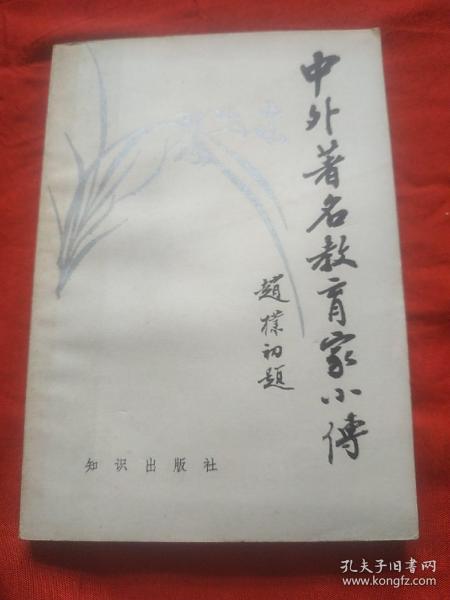 中外著名教育家小傳
趙樸初題
知识出版社
孔夫子旧书网
www.kongfz.com